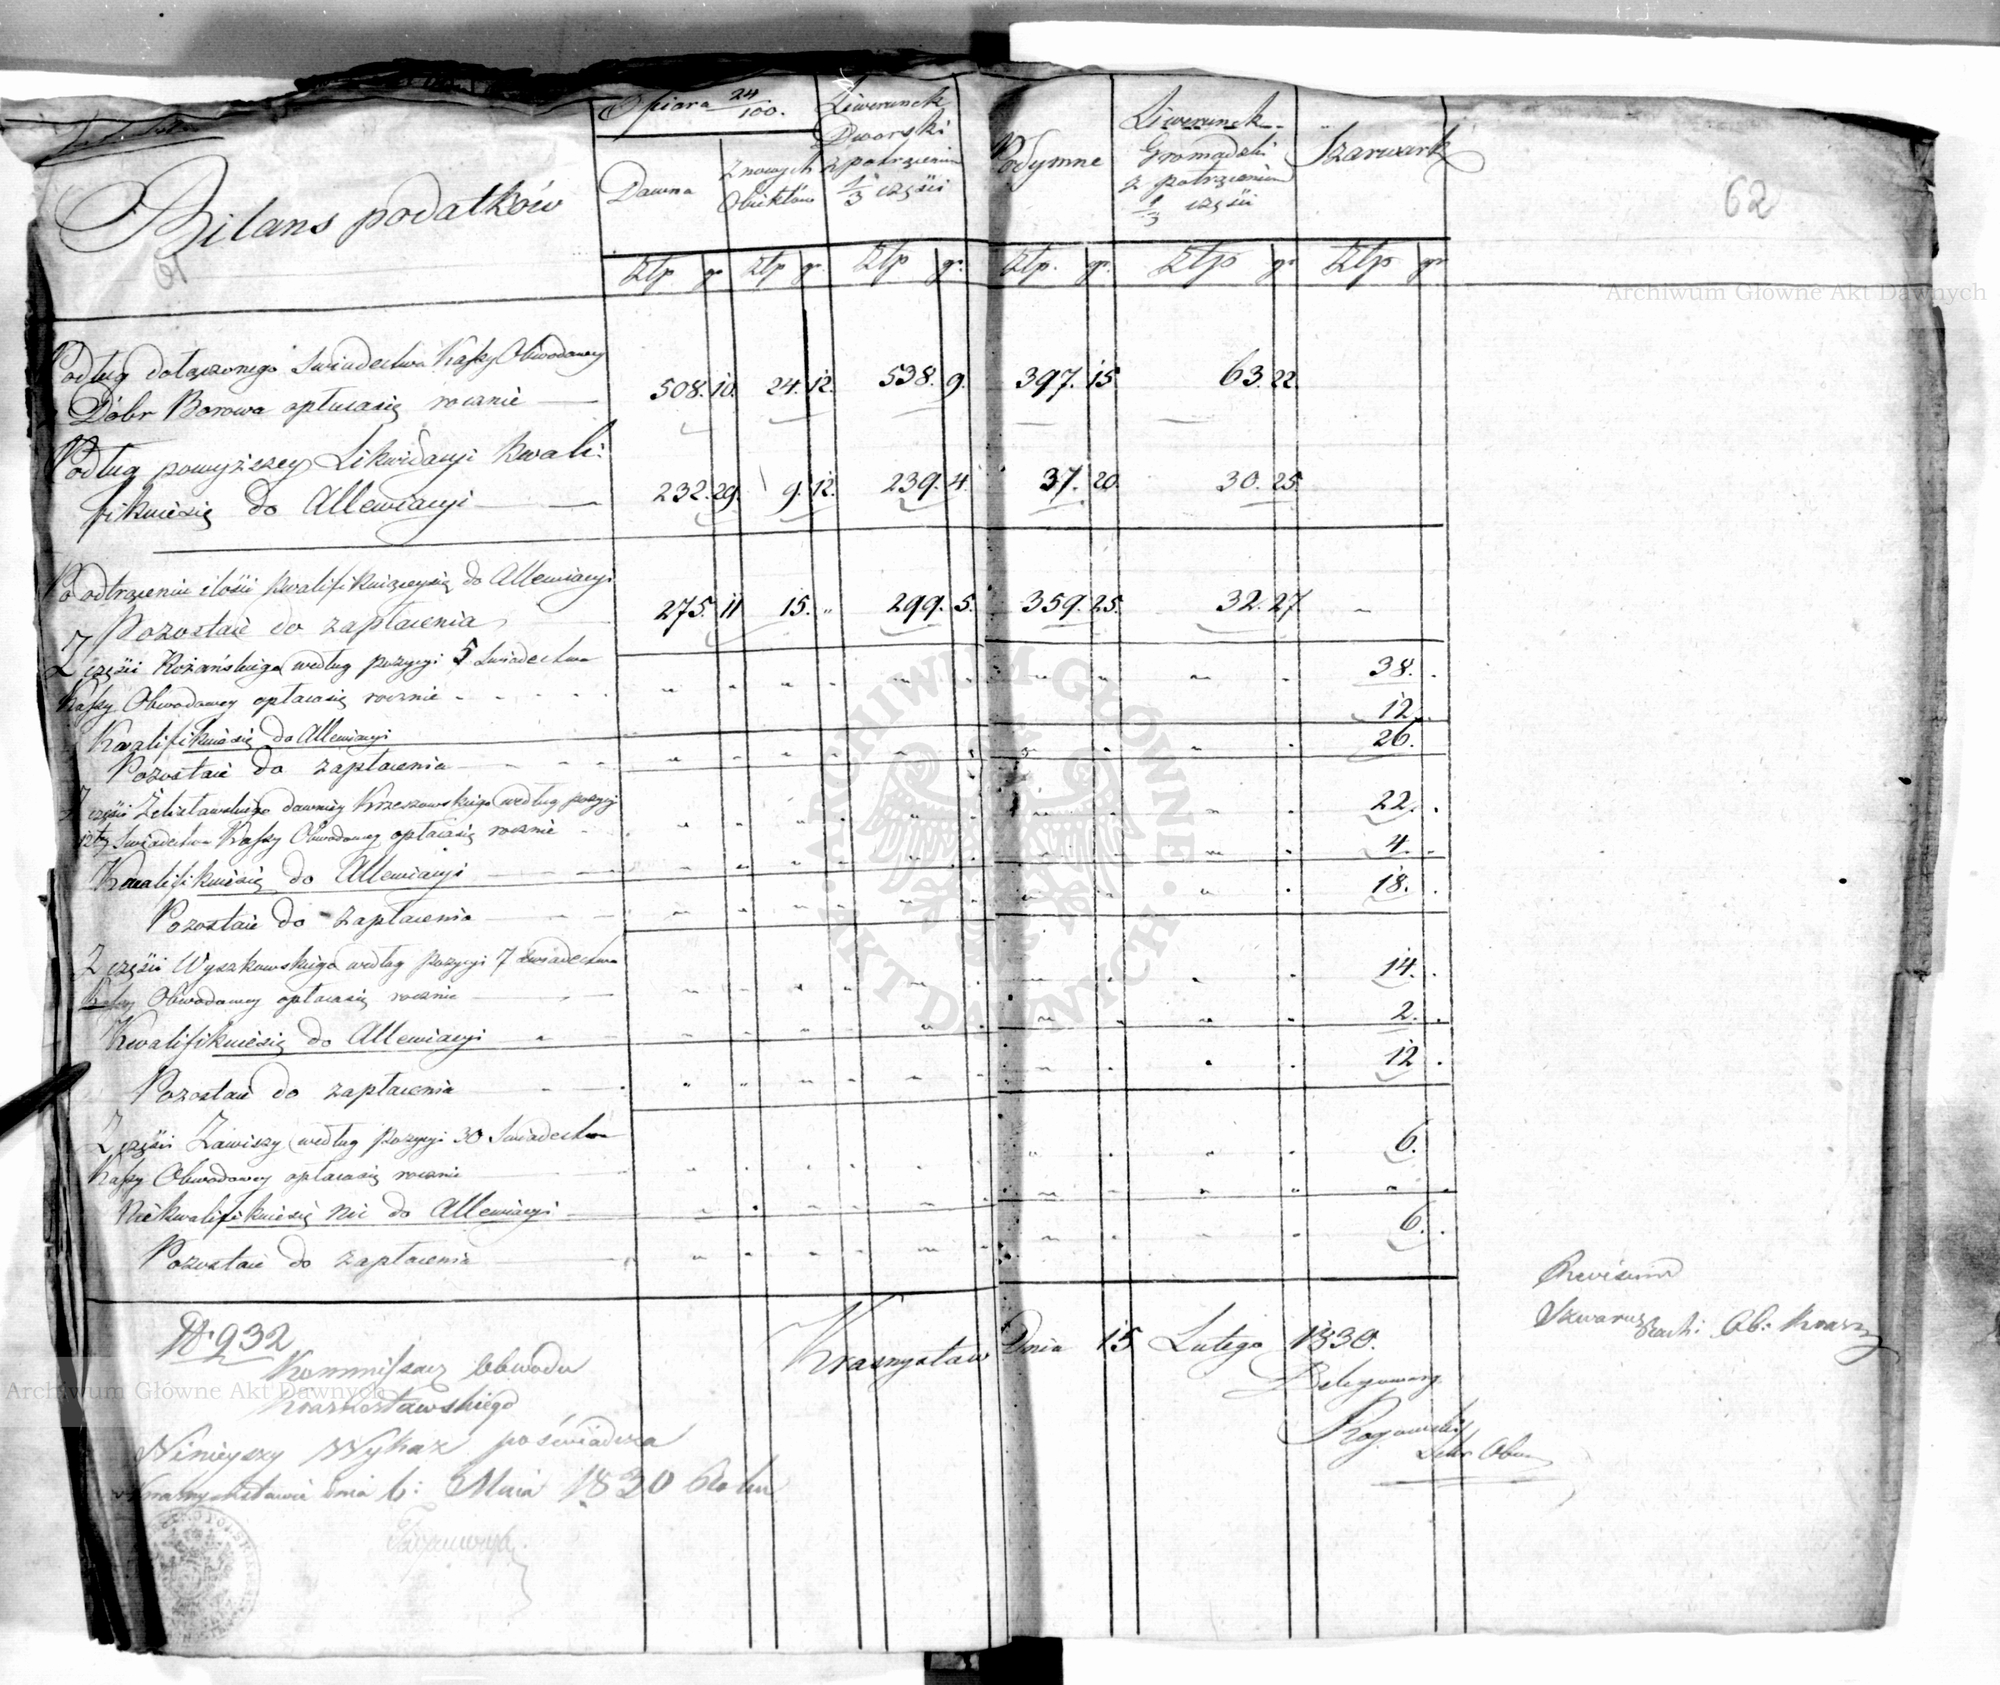 Ofiara 24/100.
Liwerunek
Dworski
z potrąceniem
1/3 części
Dawna
z nowych
Obiektów
Podymne
Liwerunek
Gromadzki
z potrąceniem
1/3 części
Szarwark
62
Bilans podatków
61
Złp. gr Złp gr. Złp gr. Złp. gr. Złp gr Złp gr
Archiwum Główne Akt Dawnych
Podług dołączonego Swiadectwa Kassy Obwodowey
z Dóbr Borowa opłaca się rocznie 508. 10. 24. 12. 538. 9. 397. 15. 63. 22
Podług powyższey Likwidacyi Kwali-
fikuie się do Allewiacyi 232. 29. 9. 12. 239. 4. 37. 20. 30. 25
Po odtrąceniu ilości kwalifikuiącey się do Allewiacyi
Pozostaie do zapłacenia 275. 11 15. " 299. 5. 359. 25. 32. 27
Z części Rożańskiego według pozycyi 5 Swiadectwa
Kassy Obwodowey opłaca się rocznie 38.
Kwalifikuie się do Allewiacyi 12.
Pozostaie do zapłacenia 26.
Z części Żelisławskiego dawniey Krzeszowskiego według pozycyi
12tey Swiadectwa Kassy Obwodowey opłaca się rocznie 22.
Kwalifikuie się do Allewiacyi 4.
Pozostaie do zapłacenia 18.
Z części Wyszkowskiego według pozycyi 7 Swiadectwa
Kassy Obwodowey opłaca się rocznie 14.
Kwalifikuie się do Allewiacyi 2.
Pozostaie do zapłacenia 12
Z części Zawiszy według pozycyi 30 Swiadectwa
Kassy Obwodowey opłaca się rocznie 6.
Niekwalifikuie się nic do Allewiacyi "
Pozostaie do zapłacenia 6.
ARCHIWUM GŁÓWNE · AKT DAWNYCH ·
Nr 932
Krasnystaw Dnia 15 Lutego 1830.
Kommissarz Obwodu
Krasnostawskiego
Delegowany
Rogowski
Sekr Obw
Revisum
Ob: Krasn
Archiwum Główne Akt Dawnych
Ninieyszy Wykaz poświadcza
w Krasnymstawie dnia 6: Maia 1830 Roku